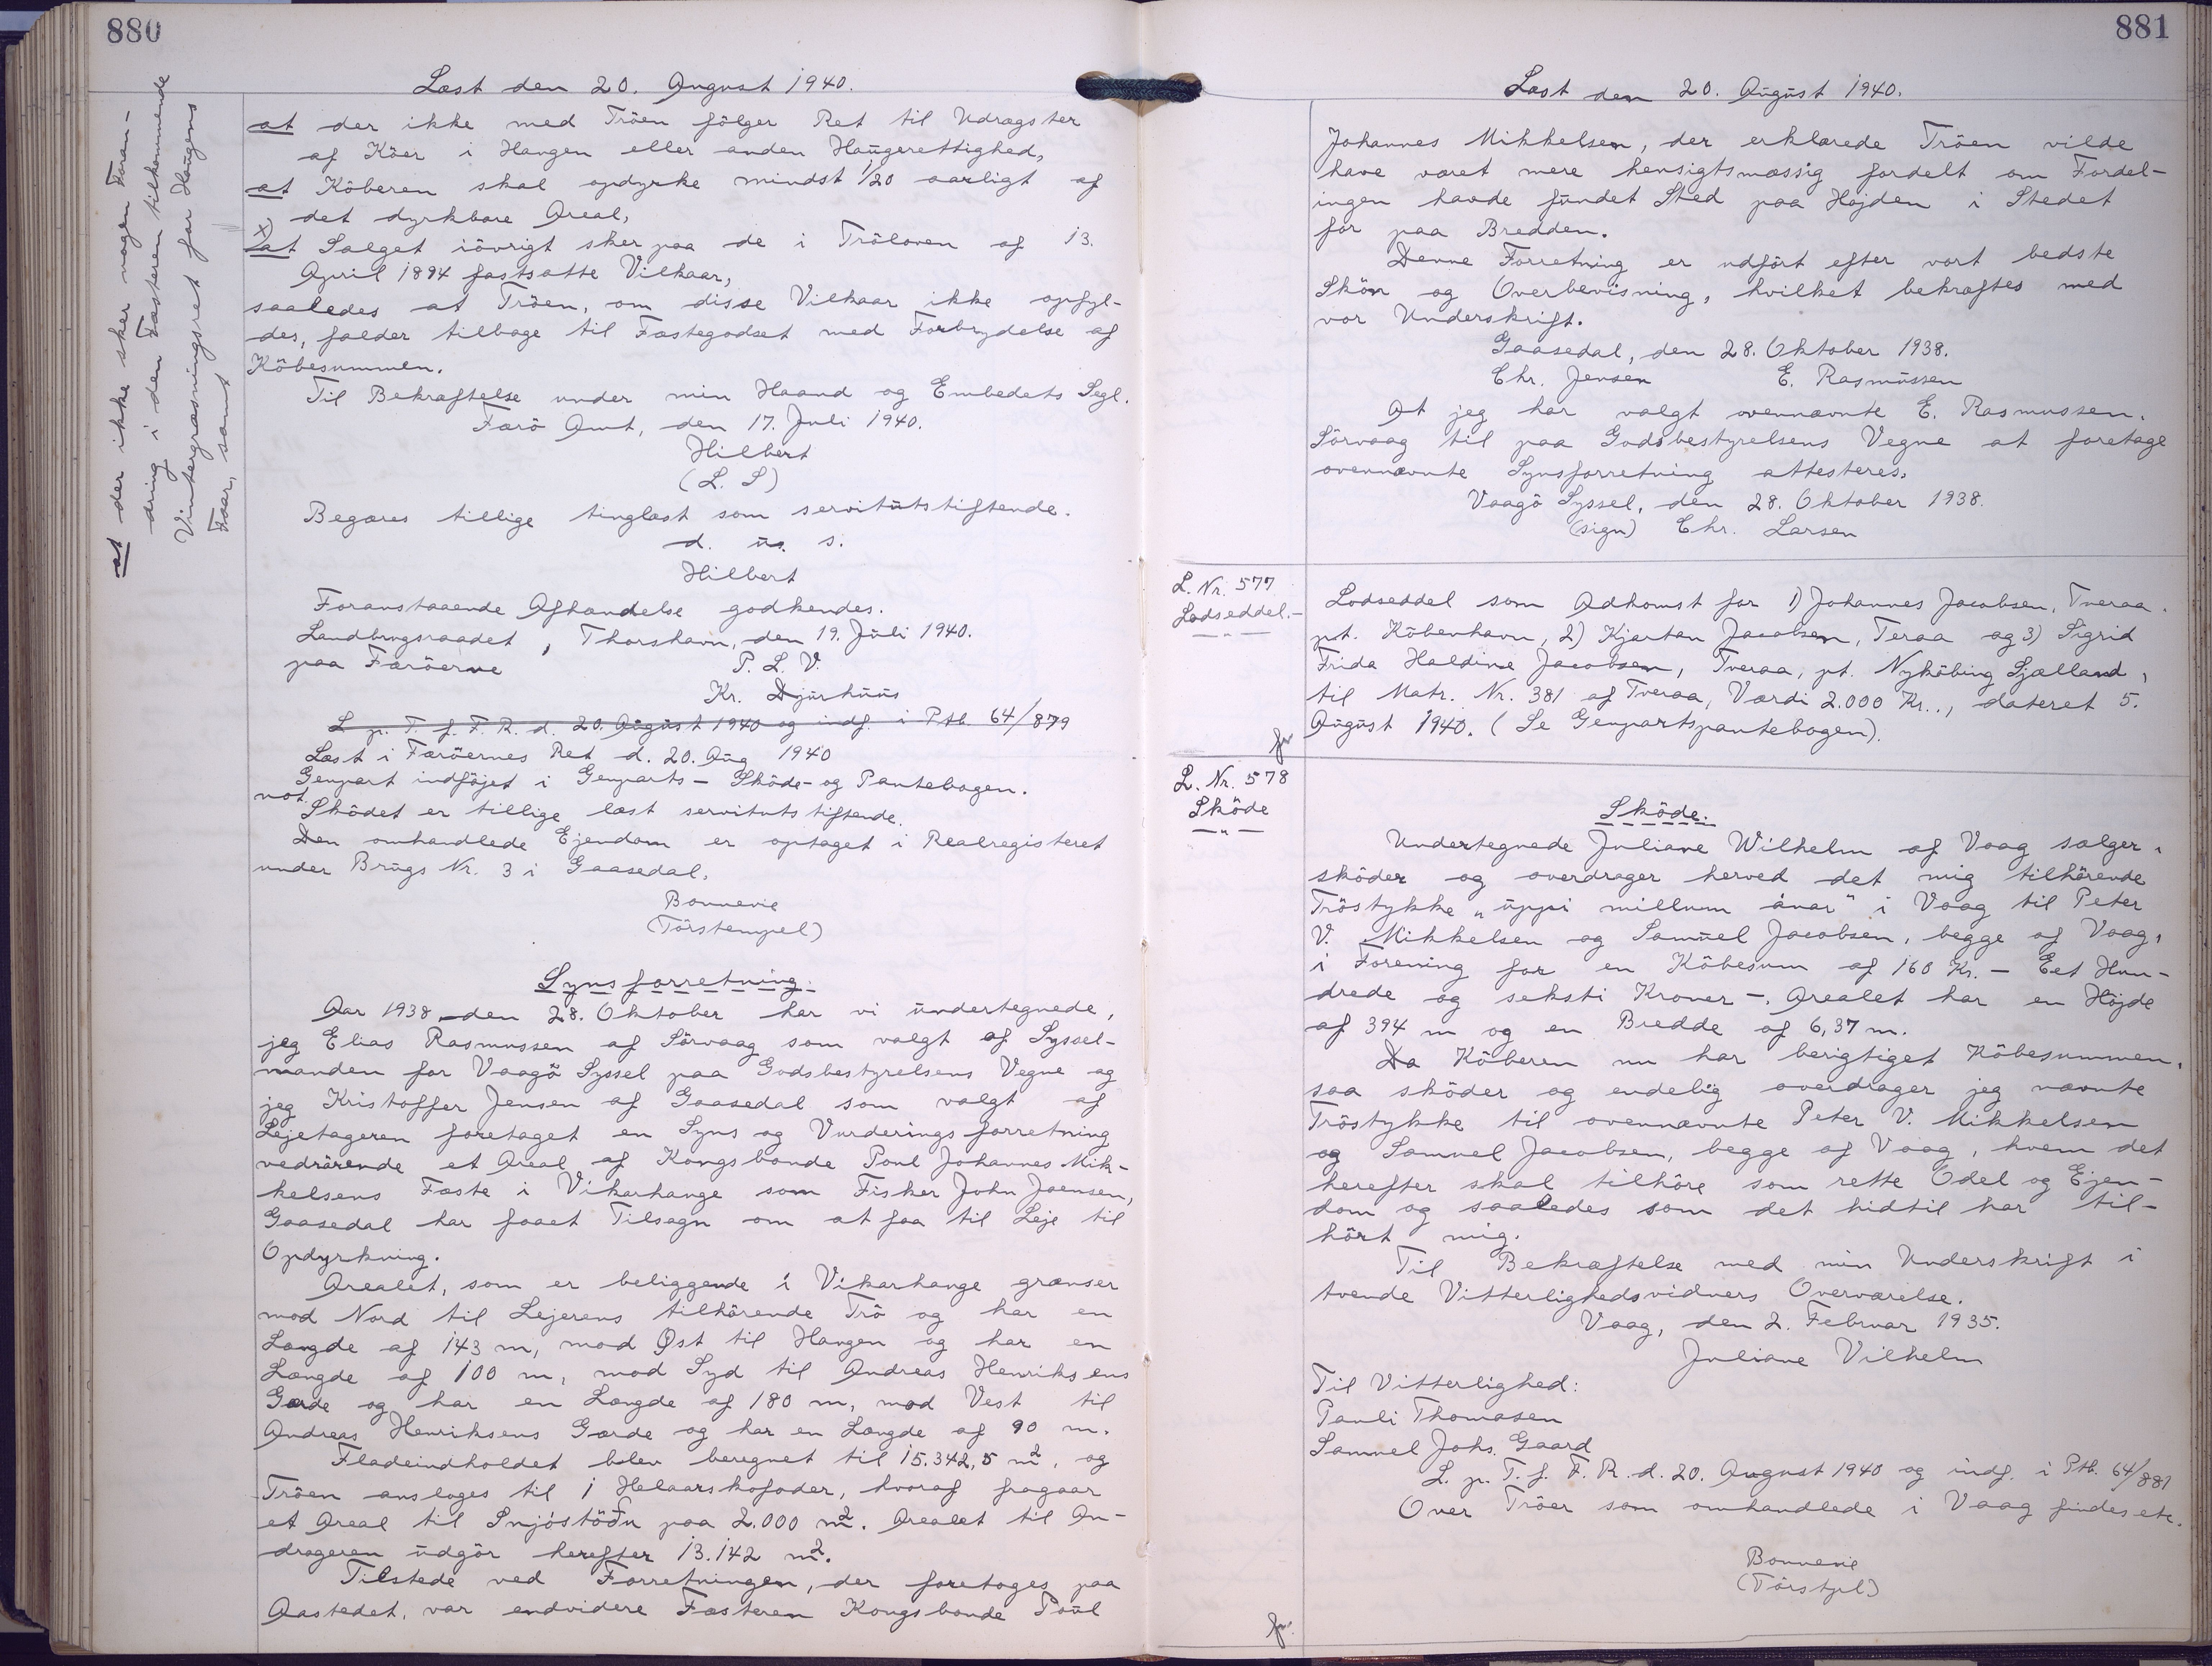 880
Læst den 20. August 1940.
at der ikke sker nogen Foran-
dring i den Fæsteren tilkommende
Vintergræsningsret for Haugens
Faar, samt
at der ikke med Tröen fölger Ret til Udragster
af Köer i Haugen eller anden Haugerettighed,
at Köberen skal opdyrke mindst 1/20 aarligt af
det dyrkbare Areal,
x) at Salget iövrigt sker paa de i Tröloven af 13.
April 1894 fastsatte Vilkaar,
saaledes at Tröen, om disse Vilkaar ikke opfyl-
des, falder tilbage til Fæstegodset med Forbrydelse af
Köbesummen.
Til Bekræftelse under min Haand og Embedets Segl.
Færö Amt, den 17. Juli 1940.
Hilbert
(L. S)
Begæres tillige tinglæst som servitutstiftende.
d. u. s.
Hilbert
Foranstaaende Afhændelse godkendes.
Landbrugsraadet, Thorshavn, den 19. Juli 1940.
paa Færöerne P. L. V.
Kr. Djurhuus
L. p. T. f. F. R. d. 20. August 1940 og indf. i Ptb. 64/879
Læst i Færöernes Ret d. 20. Aug 1940
Genpart indföjet i Genparts- Sköde- og Pantebogen.
not. Sködet er tillige læst servitutstiftende.
Den omhandlede Ejendom er optaget i Realregisteret
under Brugs Nr. 3 i Gaasedal.
Bonnevie
(Törstempel)
Synsforretning.
Aar 1938, den 28. Oktober har vi undertegnede,
jeg Elias Rasmussen af Sörvaag som valgt af Syssel-
manden for Vaagö Syssel paa Godsbestyrelsens Vegne og
jeg Kristoffer Jensen af Gaasedal som valgt af
Lejetageren foretaget en Syns og Vurderings forretning
vedrörende et Areal af Kongsbonde Poul Johannes Mik-
kelsens Fæste i Vikarhauge som Fisker John Joensen,
Gaasedal har faaet Tilsagn om at faa til Leje til
Opdyrkning.
Arealet, som er beliggende i Vikarhauge grænser
mod Nord til Lejerens tilhörende Trö og har en
Længde af 143 m, mod Øst til Haugen og har en
Længde af 100 m, mod Syd til Andreas Henriksens
Gærde og har en Længde af 180 m, mod Vest til
Andreas Henriksens Gærde og har en Længde af 90 m.
Fladeindholdet blev beregnet til 15.342,5 m², og
Tröen ansloges til 1 Helaarskofoder, hvoraf fragaar
et Areal til Snjóstöðu paa 2.000 m². Arealet til An-
drageren udgör herefter 13.142 m².
Tilstede ved Forretningen, der foretoges paa
Aastedet, var endvidere Fæsteren Kongsbonde Poul
881
Læst den 20. August 1940.
Johannes Mikkelsen, der erklærede Tröen vilde
have været mere hensigtsmæssig fordelt om Fordel-
ingen havde fundet Sted paa Højden i Stedet
for paa Bredden.
Denne Forretning er udfört efter vort bedste
Skön og Overbevisning, hvilket bekræftes med
vor Underskrift.
Gaasedal, den 28. Oktober 1938.
Chr. Jensen E. Rasmussen
At jeg har valgt ovennævnte E. Rasmussen,
Sörvaag til paa Godsbestyrelsens Vegne at foretage
ovennævnte Synsforretning attesteres.
Vaagö Syssel, den 28. Oktober 1938.
(sign) Chr. Larsen
L. Nr. 577
Lodseddel.
Lodseddel som Adkomst for 1) Johannes Jacobsen, Tveraa,
pt. Köbenhavn, 2) Kjartan Jacobsen, Teraa og 3) Sigrid
Frida Haldine Jacobsen, Tveraa, pt. Nyköbing Sjælland,
til Matr. Nr. 381 af Tveraa, Værdi 2.000 Kr.., dateret 5.
August 1940. (Se Genpartspantebogen).
L. Nr. 578
Sköde
Sköde.
Undertegnede Juliane Wilhelm af Vaag sælger,
sköder og overdrager herved det mig tilhörende
Tröstykke "uppi millum ánar" i Vaag til Peter
V. Mikkelsen og Samuel Jacobsen, begge af Vaag,
i Forening for en Köbesum af 160 Kr. - Eet Hun-
drede og seksti Kroner -. Arealet har en Højde
af 394 m og en Bredde af 6,37 m.
Da Köberen nu har berigtiget Köbesummen,
saa sköder og endelig overdrager jeg nævnte
Tröstykke til ovennævnte Peter V. Mikkelsen
og Samuel Jacobsen, begge af Vaag, hvem det
herefter skal tilhöre som rette Odel og Ejen-
dom og saaledes som det hidtil har til-
hört mig.
Til Bekræftelse med min Underskrift i
tvende Vitterlighedsvidners Overværelse.
Vaag, den 2. Februar 1935.
Juliane Vilhelm
Til Vitterlighed:
Pauli Thomasen
Samuel Johs. Gaard
L. p. T. f. F. R. d. 20. August 1940 og indf. i Ptb. 64/881
Over Tröer som omhandlede i Vaag findes etc.
Bonnevie
(Törstpl)